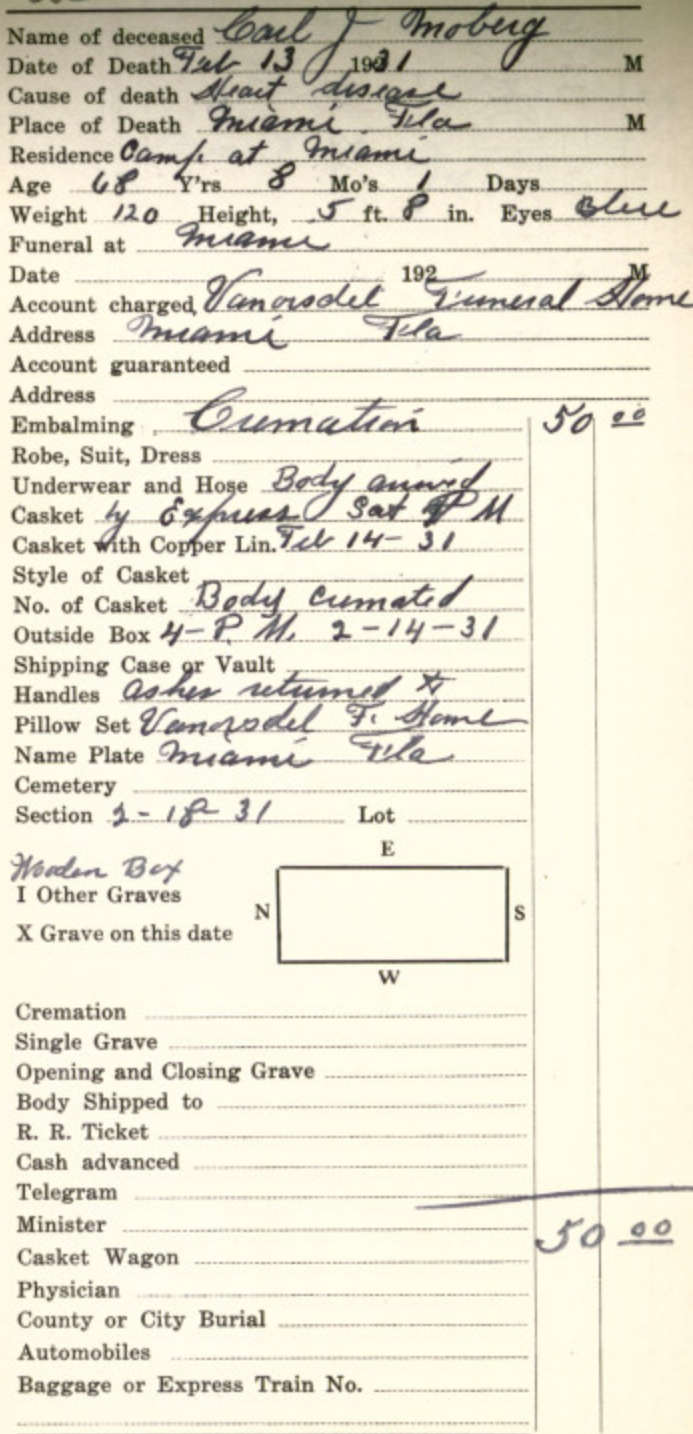 Name of deceased Carl J Moberg
Date of Death Feb 13 1931 M
Cause of death Heart disease
Place of Death Miami Fla M
Residence Camp at Miami
Age 68 Y'rs 8 Mo's 1 Days
Weight 120 Height, 5 ft. 8 in. Eyes Blue
Funeral at Miami
Date 192 M
Account charged Vanorsdel Funeral Home
Address Miami Fla
Account guaranteed
Address
Embalming Cremation 50 00
Robe, Suit, Dress
Underwear and Hose Body arrived
Casket by Express Sat P M
Casket with Copper Lin. Feb 14-31
Style of Casket
No. of Casket Body cremated
Outside Box 4-P. M. 2-14-31
Shipping Case or Vault
Handles ashes returned to
Pillow Set Vanorsdel F. Home
Name Plate Miami Fla
Cemetery
Section 2-18-31 Lot
E
Wooden Box
I Other Graves
N S
X Grave on this date
W
Cremation
Single Grave
Opening and Closing Grave
Body Shipped to
R. R. Ticket
Cash advanced
Telegram
Minister 50 00
Casket Wagon
Physician
County or City Burial
Automobiles
Baggage or Express Train No.